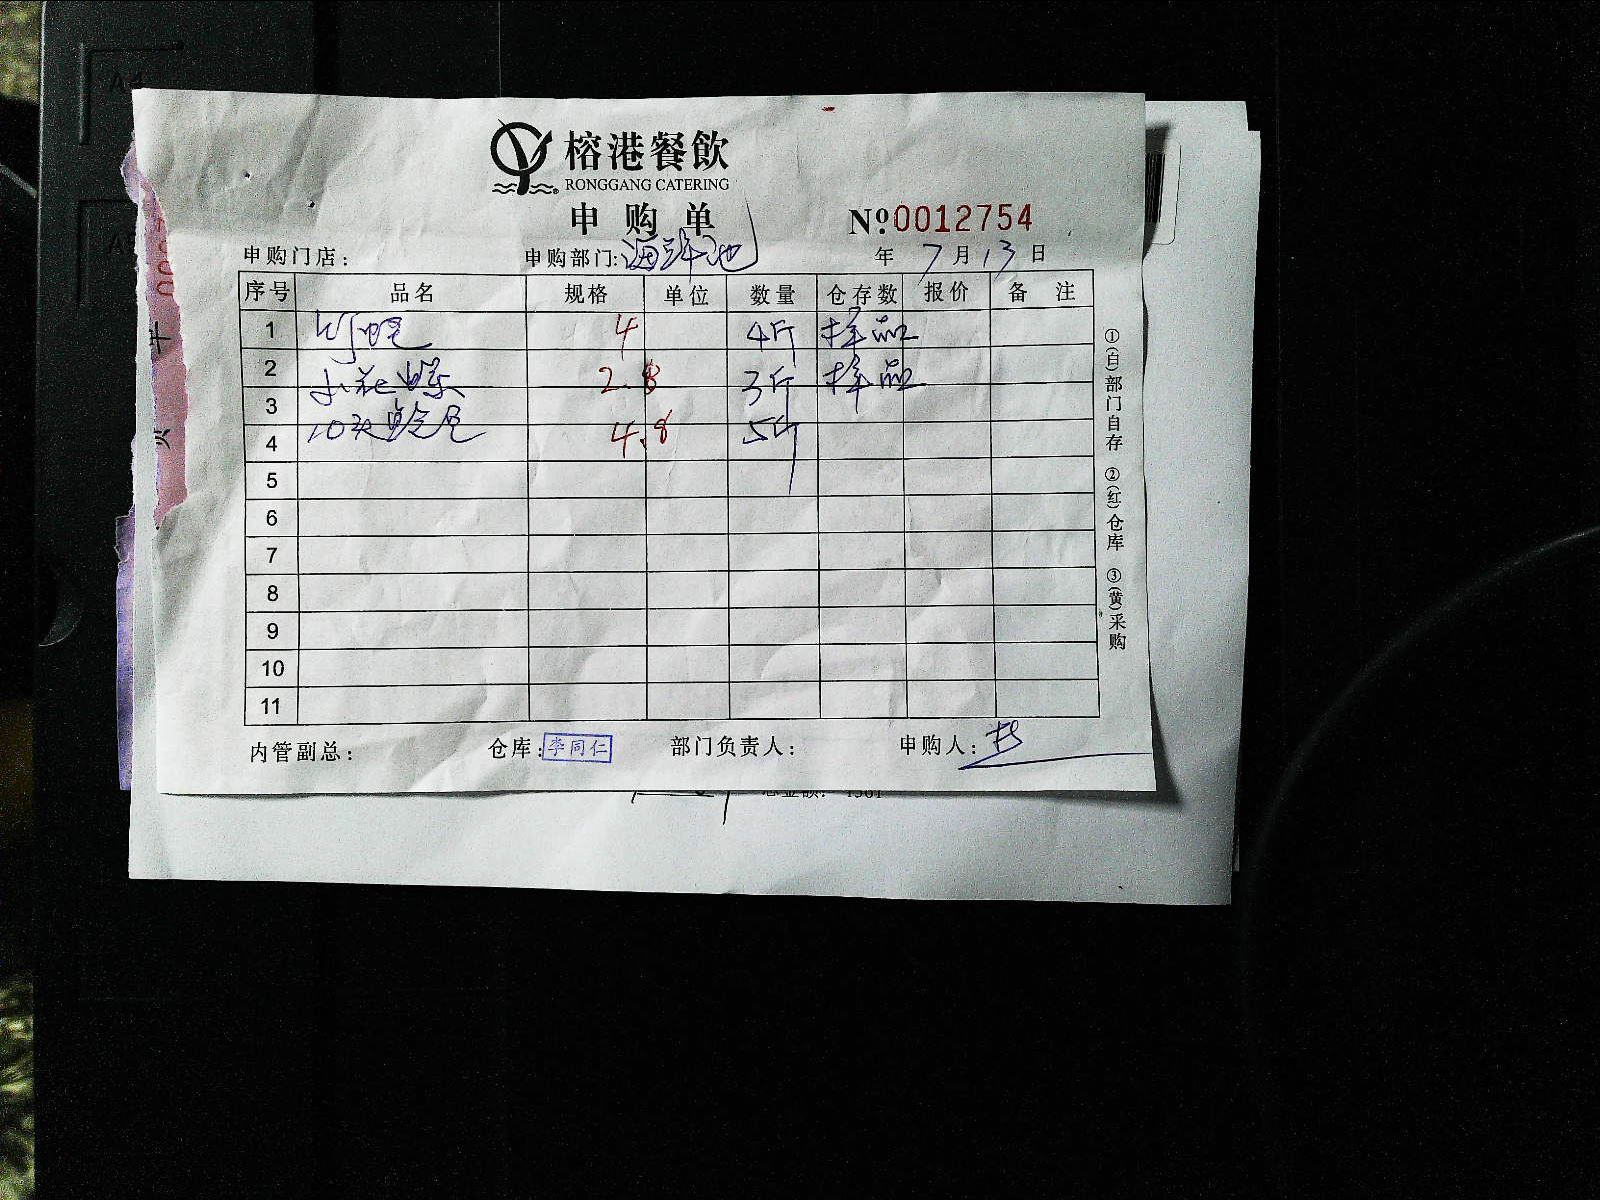 榕港餐飲
RONGGANG CATERING
申购单
№0012754
申购门店: 申购部门:海鲜池 年 7 月 13 日
序号 品名 规格 单位 数量 仓存数 报价 备 注
1 4 4斤 样品
2 小花螺 2.8 3斤 样品
3 10头鲍鱼
4 4.8 5斤
5
6
7
8
9
10
11
内管副总: 仓库:李同仁 部门负责人: 申购人:
①(白)部门自存 ②(红)仓库 ③(黄)采购